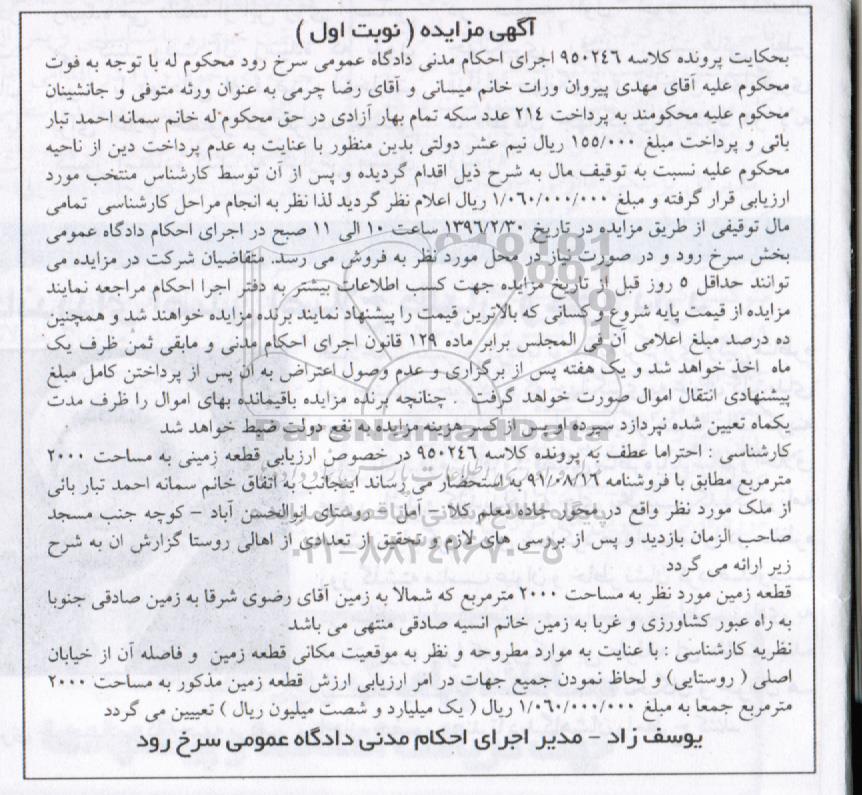 آگهی مزایده ( نوبت اول )
بحکایت پرونده کلاسه ۹۵۰۲۴۶ اجرای احکام مدنی دادگاه عمومی سرخ رود محکوم له با توجه به فوت
محکوم علیه آقای مهدی پیروان وراث خانم میسانی و آقای رضا چرمی به عنوان ورثه متوفی و جانشینان
محکوم علیه محکومند به پرداخت ۲۱۴ عدد سکه تمام بهار آزادی در حق محکوم له خانم سمانه احمد تبار
بائی و پرداخت مبلغ ۱۵۵/۰۰۰ ریال نیم عشر دولتی بدین منظور با عنایت به عدم پرداخت دین از ناحیه
محکوم علیه نسبت به توقیف مال به شرح ذیل اقدام گردیده و پس از آن توسط کارشناس منتخب مورد
ارزیابی قرار گرفته و مبلغ ۱/۰۶۰/۰۰۰/۰۰۰ ریال اعلام نظر گردید لذا نظر به انجام مراحل کارشناسی تمامی
مال توقیفی از طریق مزایده در تاریخ ۱۳۹۶/۲/۳۰ ساعت ۱۰ الی ۱۱ صبح در اجرای احکام دادگاه عمومی
بخش سرخ رود و در صورت نیاز در محل مورد نظر به فروش می رسد. متقاضیان شرکت در مزایده می
توانند حداقل ۵ روز قبل از تاریخ مزایده جهت کسب اطلاعات بیشتر به دفتر اجرا احکام مراجعه نمایند
مزایده از قیمت پایه شروع و کسانی که بالاترین قیمت را پیشنهاد نمایند برنده مزایده خواهند شد و همچنین
ده درصد مبلغ اعلامی آن فی المجلس برابر ماده ۱۲۹ قانون اجرای احکام مدنی و مابقی ثمن ظرف یک
ماه اخذ خواهد شد و یک هفته پس از برگزاری و عدم وصول اعتراض به آن پس از پرداختن کامل مبلغ
پیشنهادی انتقال اموال صورت خواهد گرفت . چنانچه برنده مزایده باقیمانده بهای اموال را ظرف مدت
یکماه تعیین شده نپردازد سپرده او پس از کسر هزینه مزایده به نفع دولت ضبط خواهد شد
ParsNamadData
کارشناسی : احتراما عطف به پرونده کلاسه ۹۵۰۲۴۶ در خصوص ارزیابی قطعه زمینی به مساحت ۲۰۰۰
مترمربع مطابق با فروشنامه ۹۱/۰۸/۱۶ به استحضار می رساند اینجانب به اتفاق خانم سمانه احمد تبار بائی
از ملک مورد نظر واقع در محور جاده معلم کلا – آمل – روستای ابوالحسن آباد – کوچه جنب مسجد
صاحب الزمان بازدید و پس از بررسی های لازم و تحقیق از تعدادی از اهالی روستا گزارش ان به شرح
۰۲۱–۸۸۳۴۹۶۷۰–۵
زیر ارائه می گردد
قطعه زمین مورد نظر به مساحت ۲۰۰۰ مترمربع که شمالا به زمین آقای رضوی شرقا به زمین صادقی جنوبا
به راه عبور کشاورزی و غربا به زمین خانم انسیه صادقی منتهی می باشد
نظریه کارشناسی : با عنایت به موارد مطروحه و نظر به موقعیت مکانی قطعه زمین و فاصله آن از خیابان
اصلی ( روستایی) و لحاظ نمودن جمیع جهات در امر ارزیابی ارزش قطعه زمین مذکور به مساحت ۲۰۰۰
مترمربع جمعا به مبلغ ۱/۰۶۰/۰۰۰/۰۰۰ ریال ( یک میلیارد و شصت میلیون ریال ) تعییین می گردد
یوسف زاد – مدیر اجرای احکام مدنی دادگاه عمومی سرخ رود